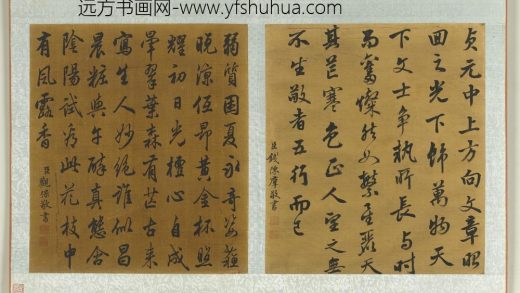 远方书画网-www.yfshuhua.com
貞元中上方向文章昭
回之光下飾萬物天
下文士爭執所長與時
而奮燦然如繁星麗天
其芒寒色正人望之無
不生敬者五行而已
臣錢陳羣敬書
弱質困夏永奇姿蘇
晚涼低昂黃金杯照
耀初日光檀心自成
暈翠葉森有芒古來
寫生人妙絕誰似昌
晨粧與午醉真態含
陰陽試看此花枝中
有風露香
臣觀保敬書